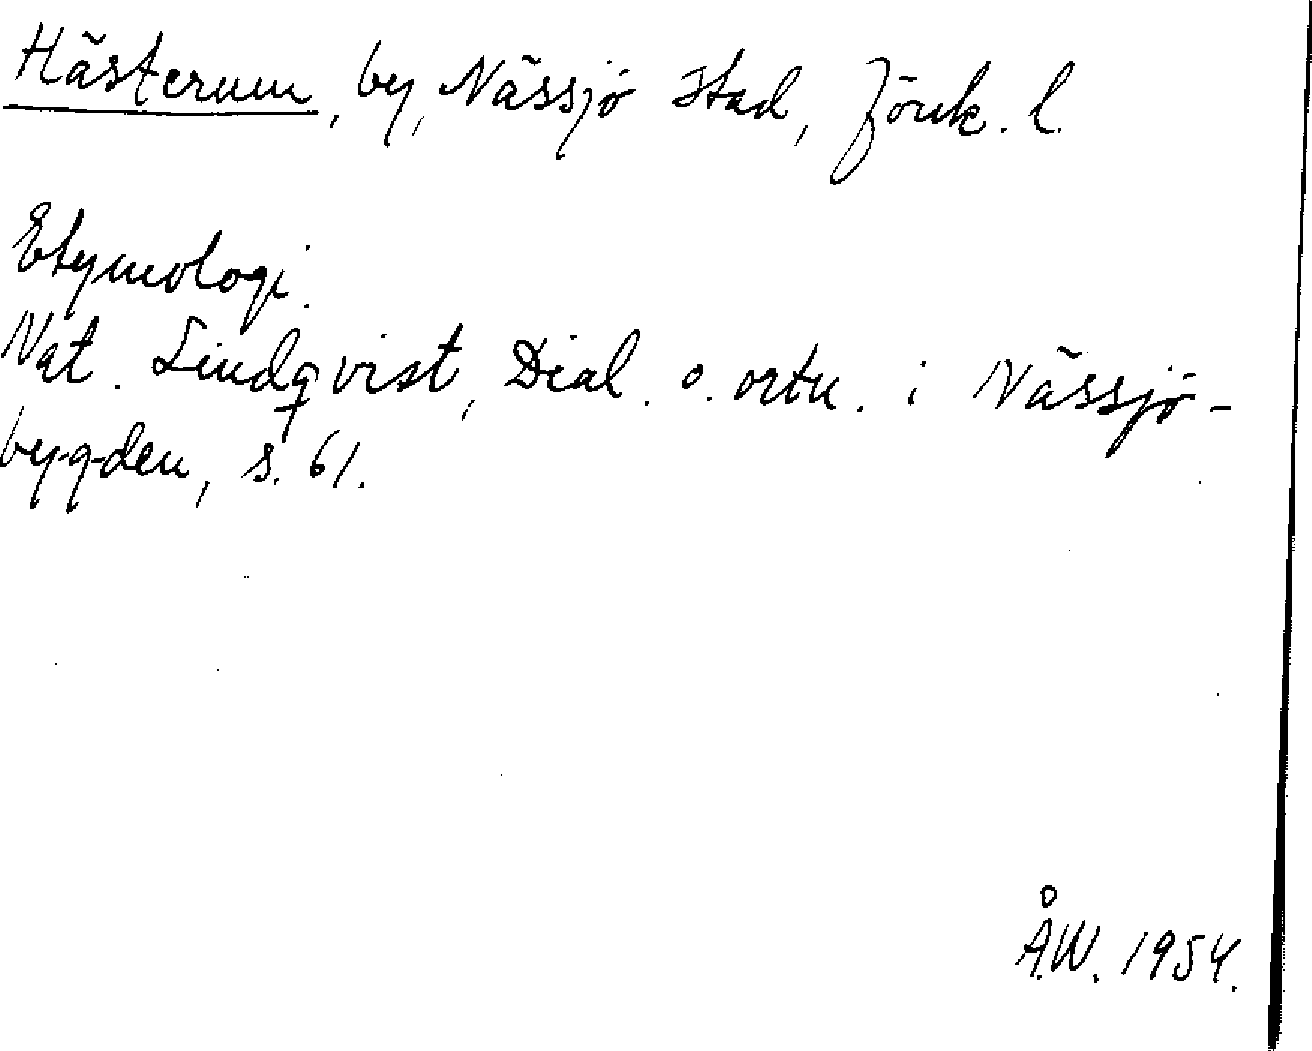 Hästerum, by, Nässjö stad, Jönk. l.
Etymologi.
Nat. Lindqvist, Dial. o. ortn. i Nässjö-
bygden, s. 61.
Å.W. 1954.